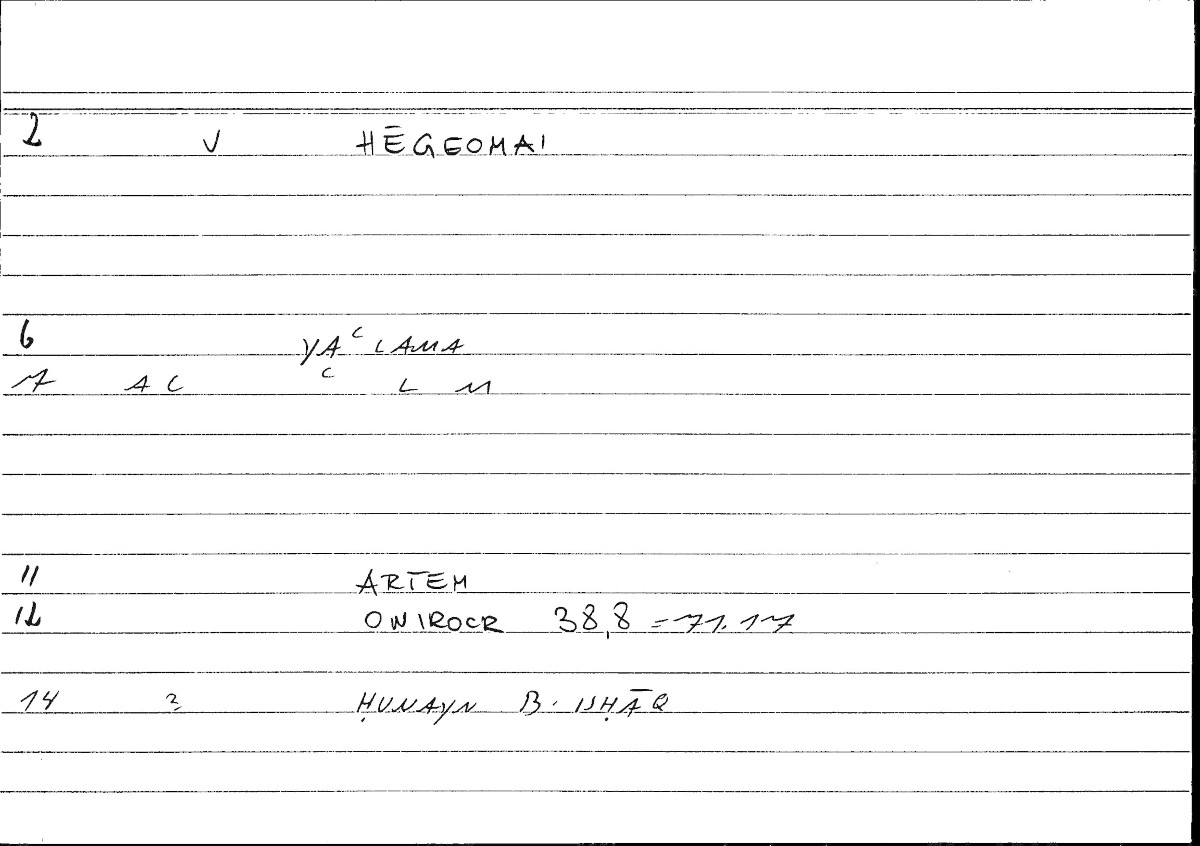 2 V HĒGEOMAI
6 YAʿLAMA
7 AC ʿ L M
11 ARTEM
12 ONIROCR 38,8 = 71.17
14 2 ḤUNAYN B. ISḤĀQ